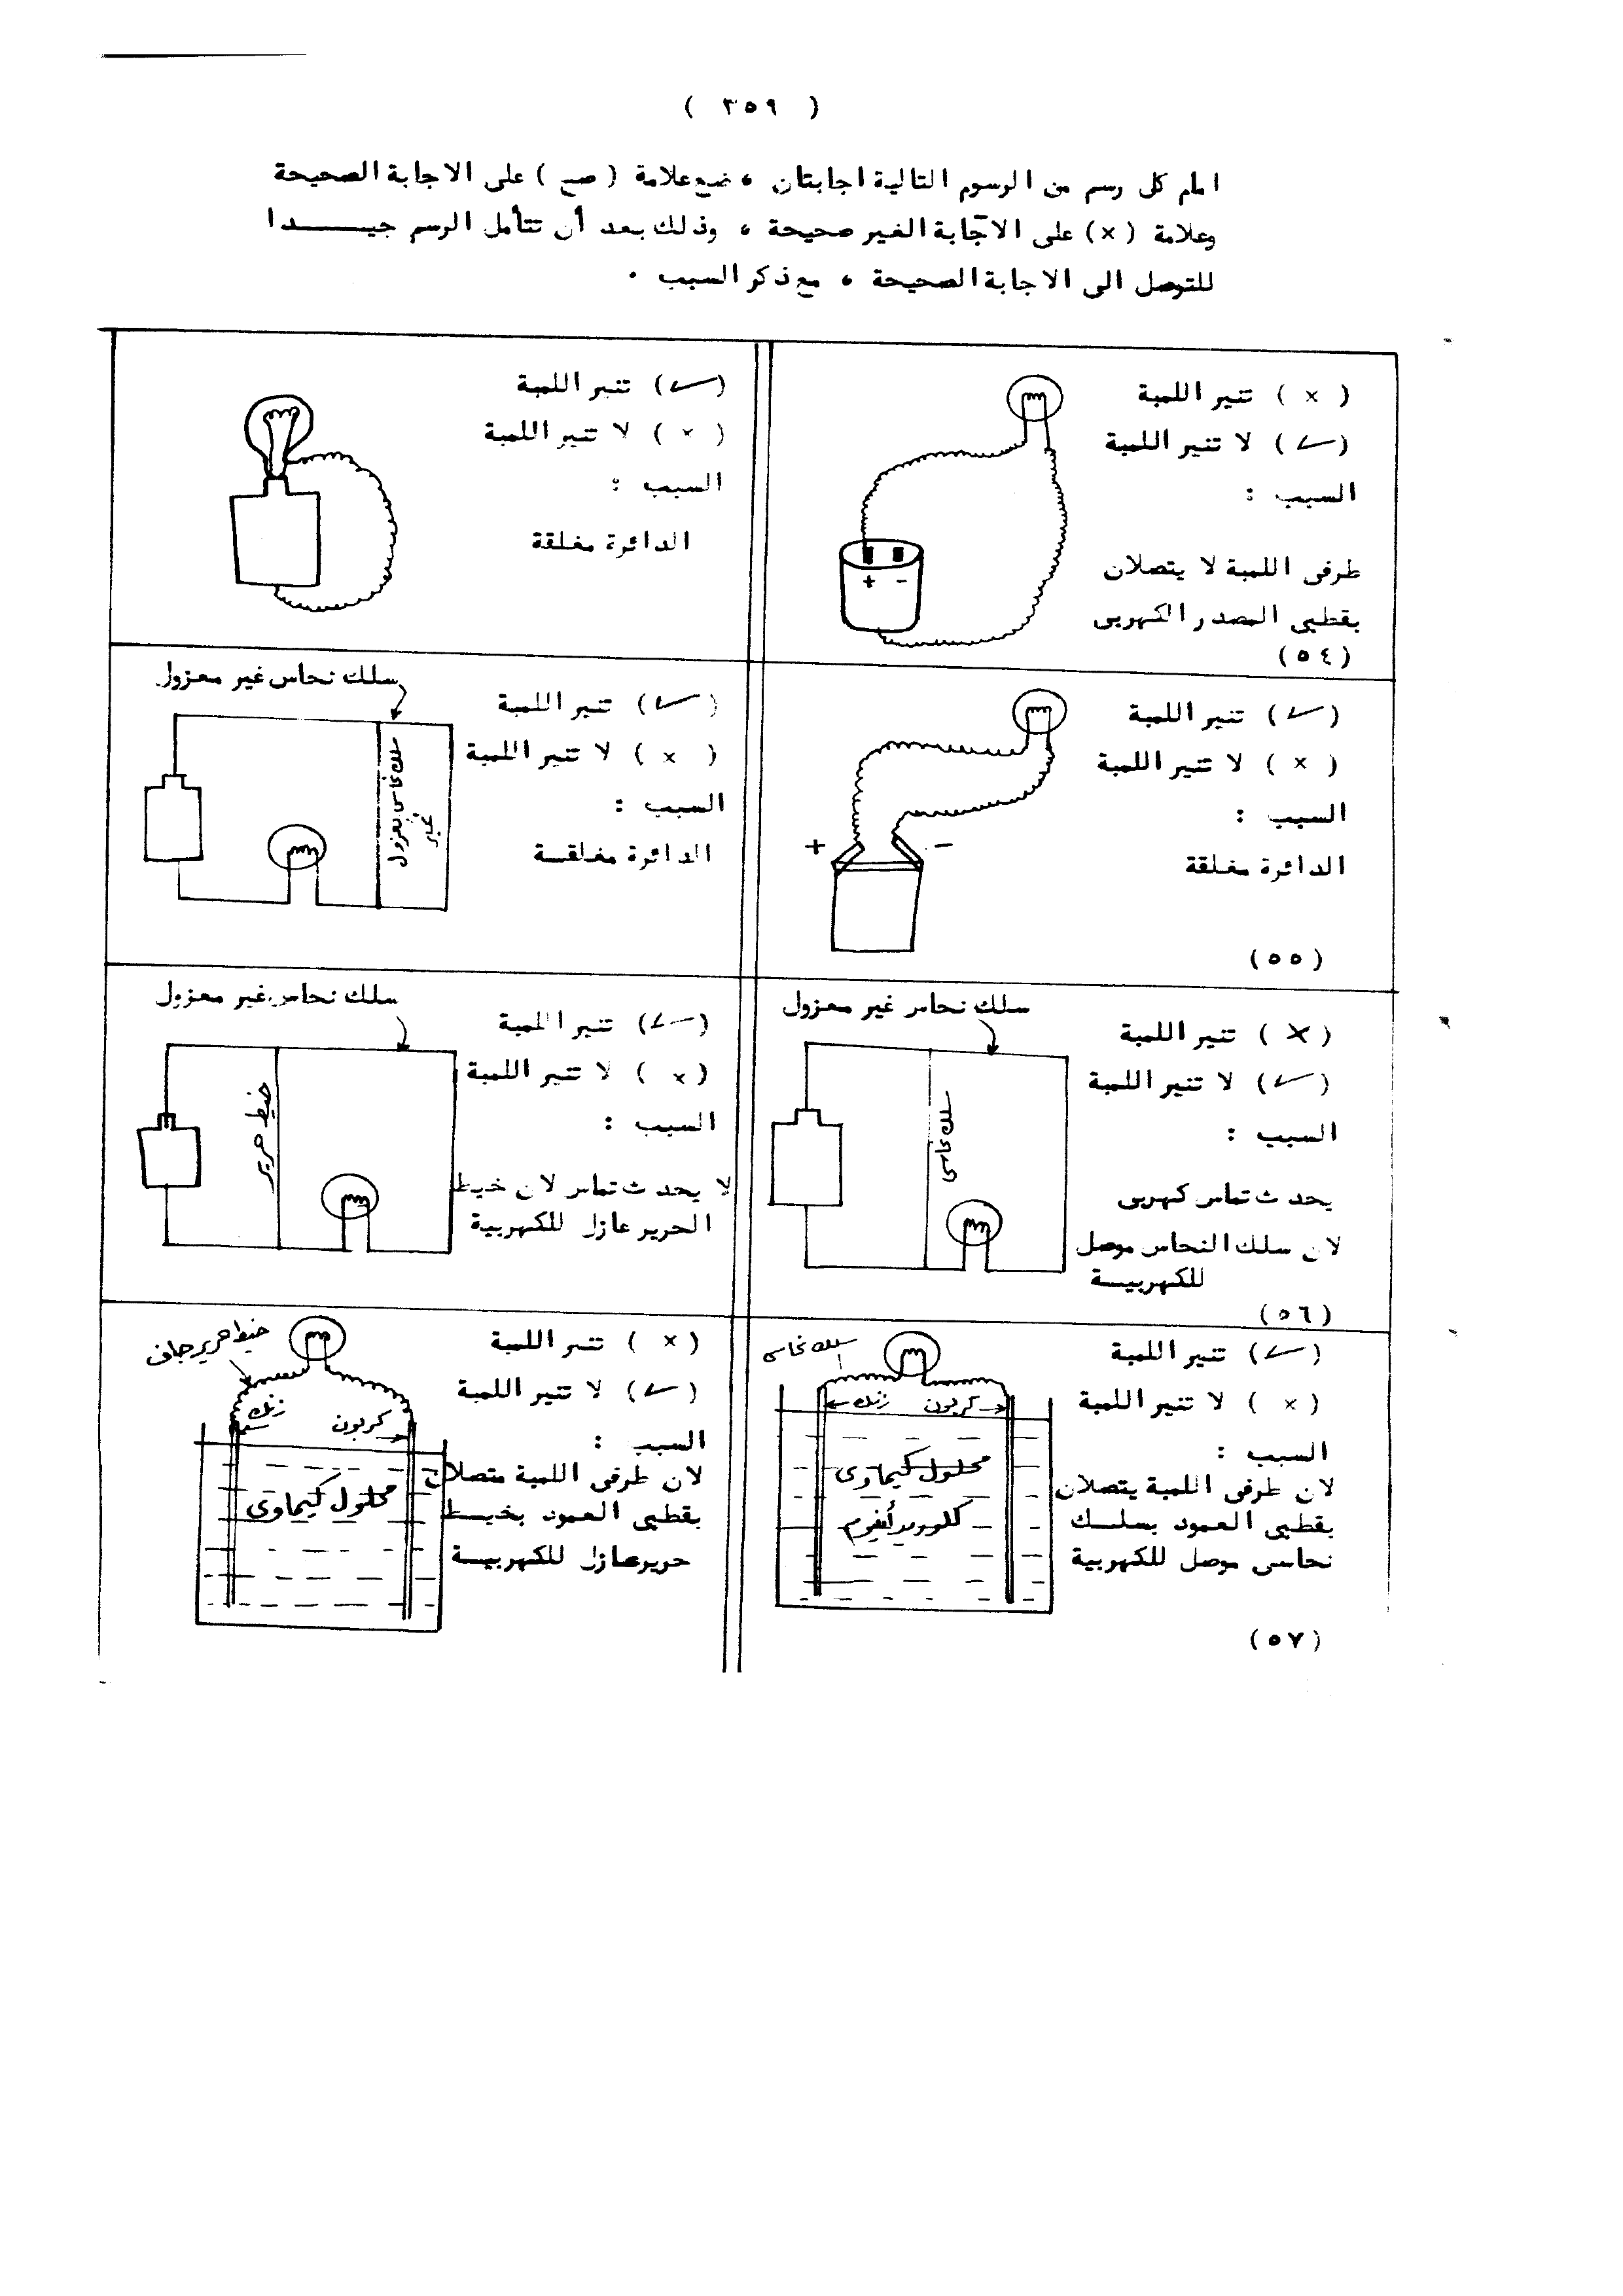 ( ٣٥٩ )
امام كل رسم من الرسوم التالية اجابتان ، ضع علامة ( صح ) على الاجابة الصحيحة
وعلامة ( × ) على الاجابة الغير صحيحة ، وذلك بعد أن تتأمل الرسم جيــــدا
للتوصل الى الاجابة الصحيحة ، مع ذكر السبب .
( × ) تنير اللمبة
(✓) لا تنير اللمبة
السبب :
طرفى اللمبة لا يتصلان
بقطبى المصدر الكهربى
+ -
(٥٤)
(✓) تنير اللمبة
( × ) لا تنير اللمبة
السبب :
الدائرة مغلقة
(✓) تنير اللمبة
( × ) لا تنير اللمبة
السبب :
الدائرة مغلقة
+ -
(٥٥)
سلك نحاس غير معزول
(✓) تنير اللمبة
( × ) لا تنير اللمبة
السبب :
الدائرة مغلقـة
سلك نحاس غير معزول
سلك نحاس غير معزول
( × ) تنير اللمبة
(✓) لا تنير اللمبة
السبب :
يحدث تماس كهربى
لان سلك النحاس موصل
للكهربيـة
سلك نحاسى
(٥٦)
سلك نحاس غير معزول
(✓) تنير اللمبة
( × ) لا تنير اللمبة
السبب :
لا يحدث تماس لان خيط
الحرير عازل للكهربية
خيط حرير
(✓) تنير اللمبة
( × ) لا تنير اللمبة
السبب :
لان طرفى اللمبة يتصلان
بقطبى العمود بسلـك
نحاسى موصل للكهربية
سلك نحاسى
كربون
زنك
محلول كيماوى
(٥٧)
( × ) تنير اللمبة
(✓) لا تنير اللمبة
السبب :
لان طرفى اللمبة متصلان
بقطبى العمود بخيـط
حرير عازل للكهربيـة
خيط حرير جاف
كربون
زنك
محلول كيماوى